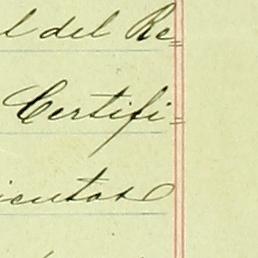 l del Re=
Certifi=
icentos